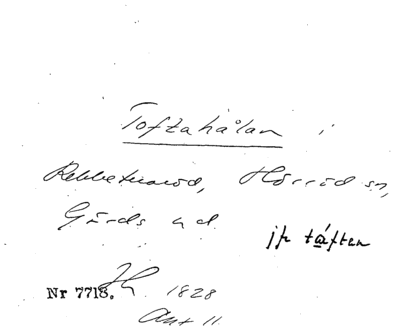 Toftahålan i
Rebbetuaröd, Hörröd sn,
Gärds hd.
jfr táften
Nr 7718. 1828
Ant 11.